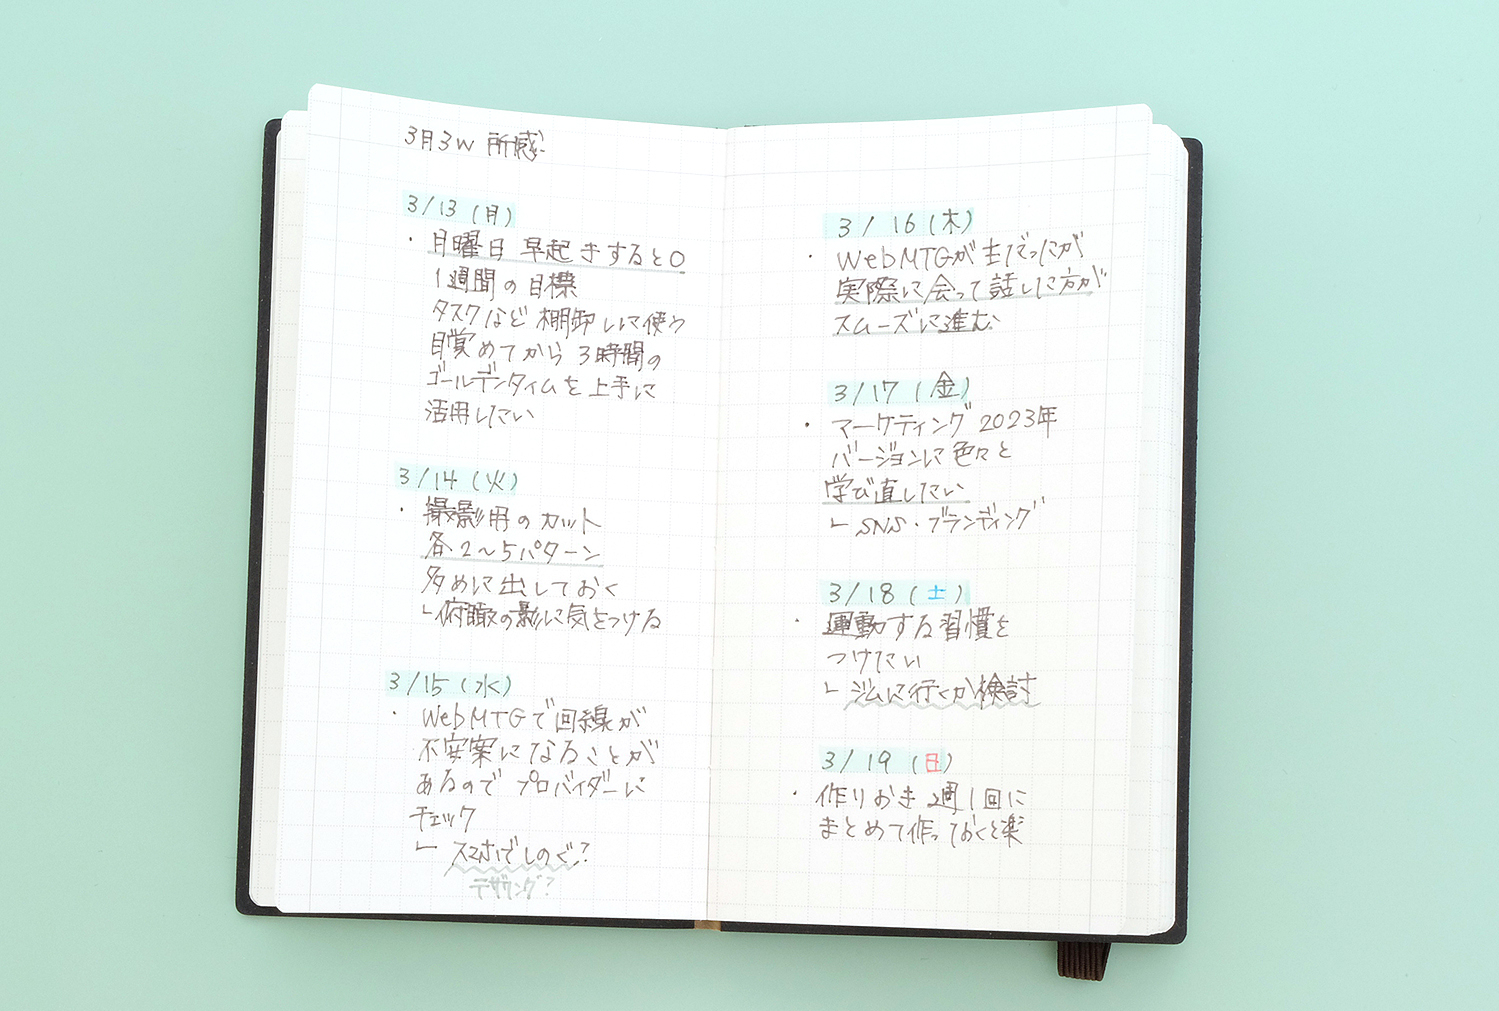 3月3W 所感
3/13(月)
・月曜日 早起きすると○
1週間の目標
タスクなど棚卸しに使う
目覚めてから3時間の
ゴールデンタイムを上手に
活用したい
3/14(火)
・撮影用のカット
各2〜5パターン
多めに出しておく
└俯瞰の影に気をつける
3/15(水)
・WebMTGで回線が
不安案になることが
あるのでプロバイダーに
チェック
└スマホでしのぐ?
テザリング?
3/16(木)
・WebMTGが主だったが
実際に会って話した方が
スムーズに進む
3/17(金)
・マーケティング2023年
バージョンに色々と
学び直したい
└SNS・ブランディング
3/18(土)
・運動する習慣を
つけたい
└ジムに行くか検討
3/19(日)
・作りおき 週1回に
まとめて作っておくと楽